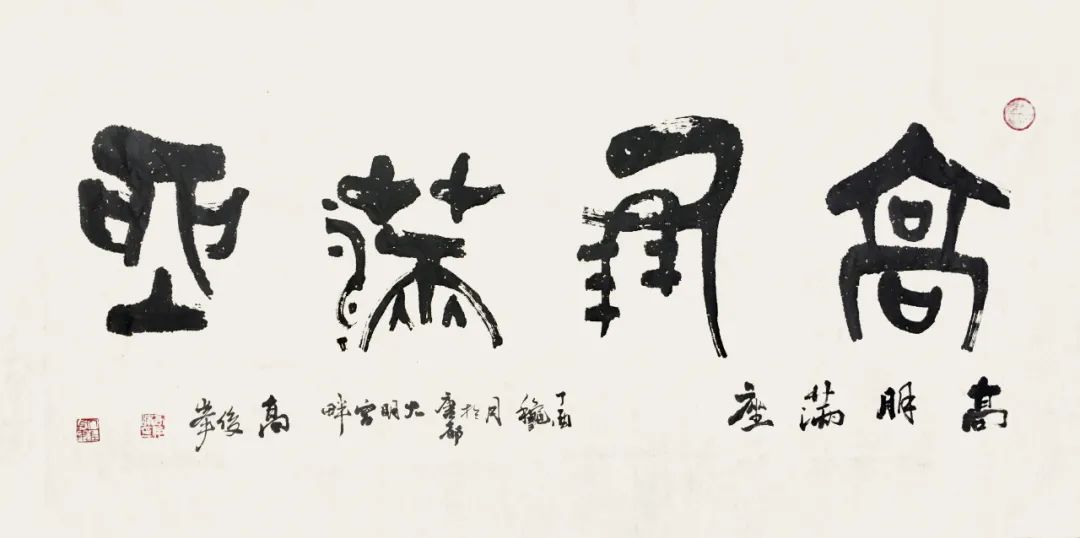 高朋滿座
高朋滿座
丁酉穐月於唐都大明宮畔高俊峯